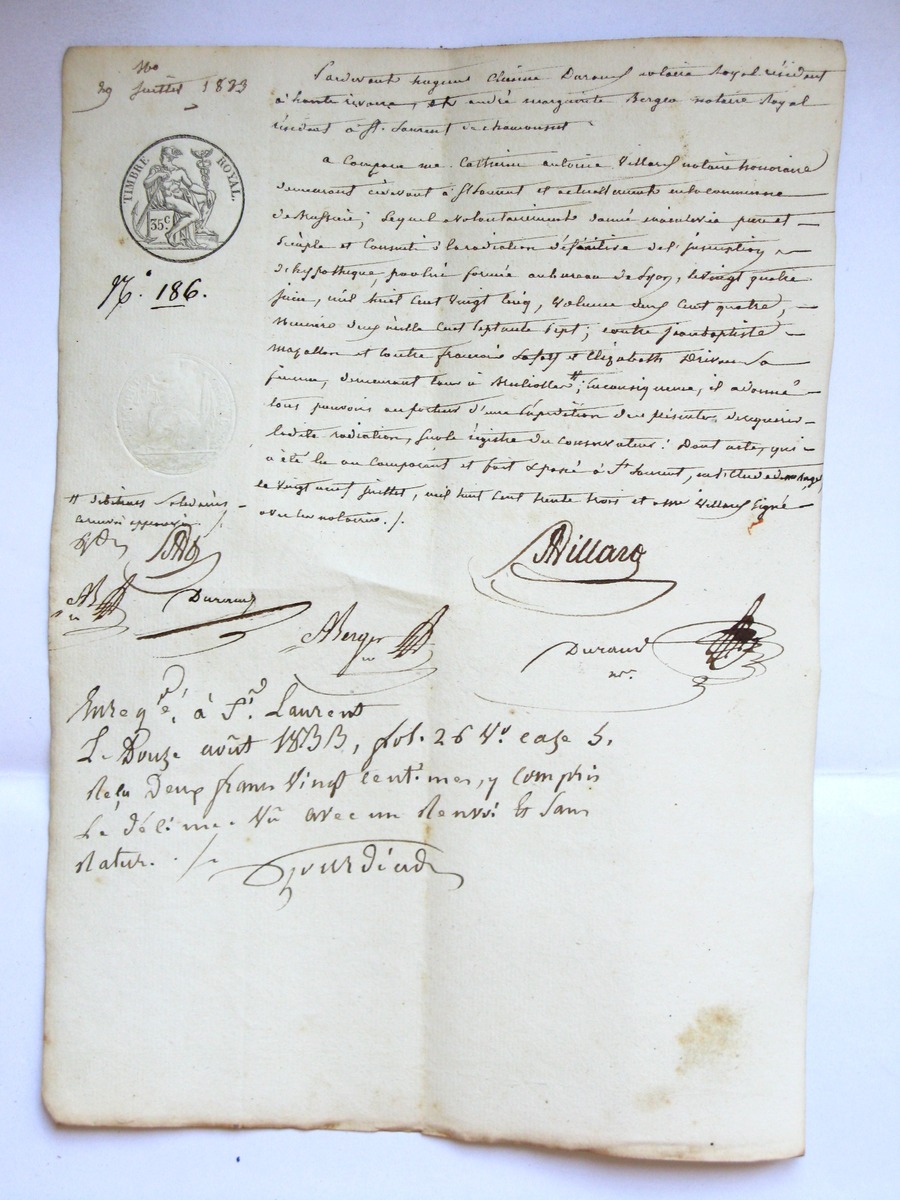 No
29 juillet 1833
TIMBRE ROYAL.
35 c.
N.° 186.
Pardevant Durand notaire Royal résident
à haute rivoire, et andré marguerite Berger notaire Royal
résident à St. Laurent de chamousset
a Comparu me. Catherin antoine Villard notaire honoraire
demeurant cidevant à St Laurent et actuellement en la commune
de ; Lequel a volontairement donné mainlevée pure et
Simple et Consenti à la radiation définitive de l'inscription
d'hypothèque, formée au bureau de Lyon, le vingt quatre
juin, mil huit Cent Vingt Cinq, Volume deux Cent quatre,
Numéro deux mille Cent Septante Sept; contre jean baptiste
Magallon et Contre françois et Elizabeth Sa
femme, demeurant tous à ; En conséquence, il a donné
tous pouvoirs au porteur d'une Expédition des présentes de requérir
ladite radiation, sur le registre du Conservateur. Dont acte, qui
a été lu au Comparant et fait & passé à St. Laurent,
le Vingt neuf juillet, mil huit Cent trente trois et a me Villard Signé
avec les notaires. /.
# débiteurs Solidaires
renvoi approuvé. /.
AVillard
Durand
ABerger
Durand
nre.
Enregé. à St. Laurent
Le Douze août 1833, fol. 26 Vo. case 5.
Reçu Deux francs Vingt centimes, y compris
Le décime. Vû avec un Renvoi Et Sans
Ratur. /.